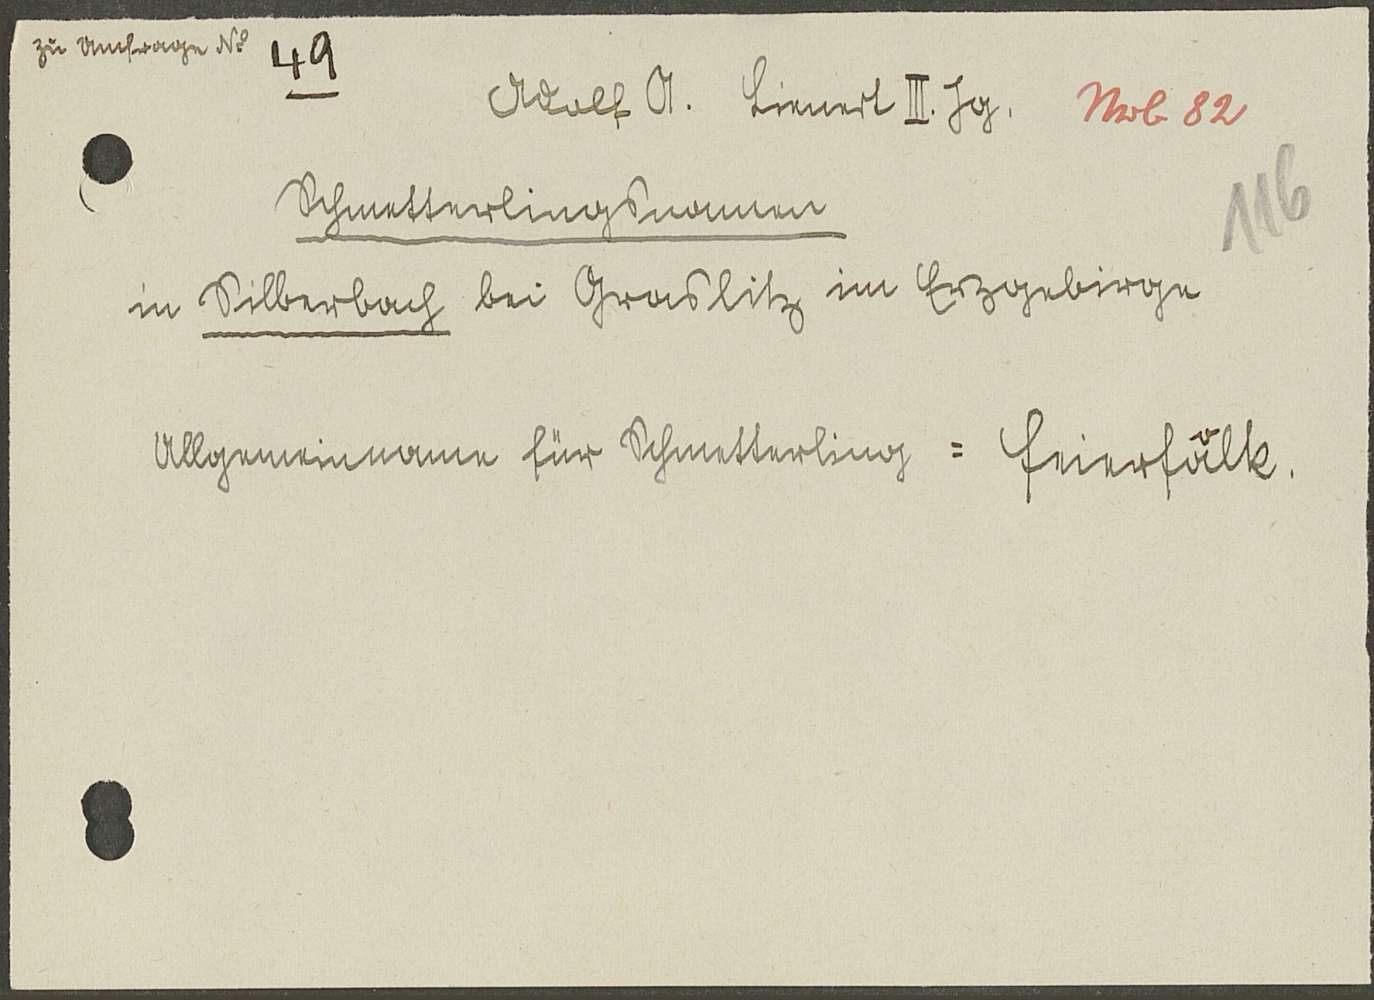 zu Umfrage No 49
Adolf A. Lienert III. Jg.
Nwb 82
116
Schmetterlingsnamen
in Silberbach bei Graslitz im Erzgebirge
Allgemeinname für Schmetterling = feierfålk.